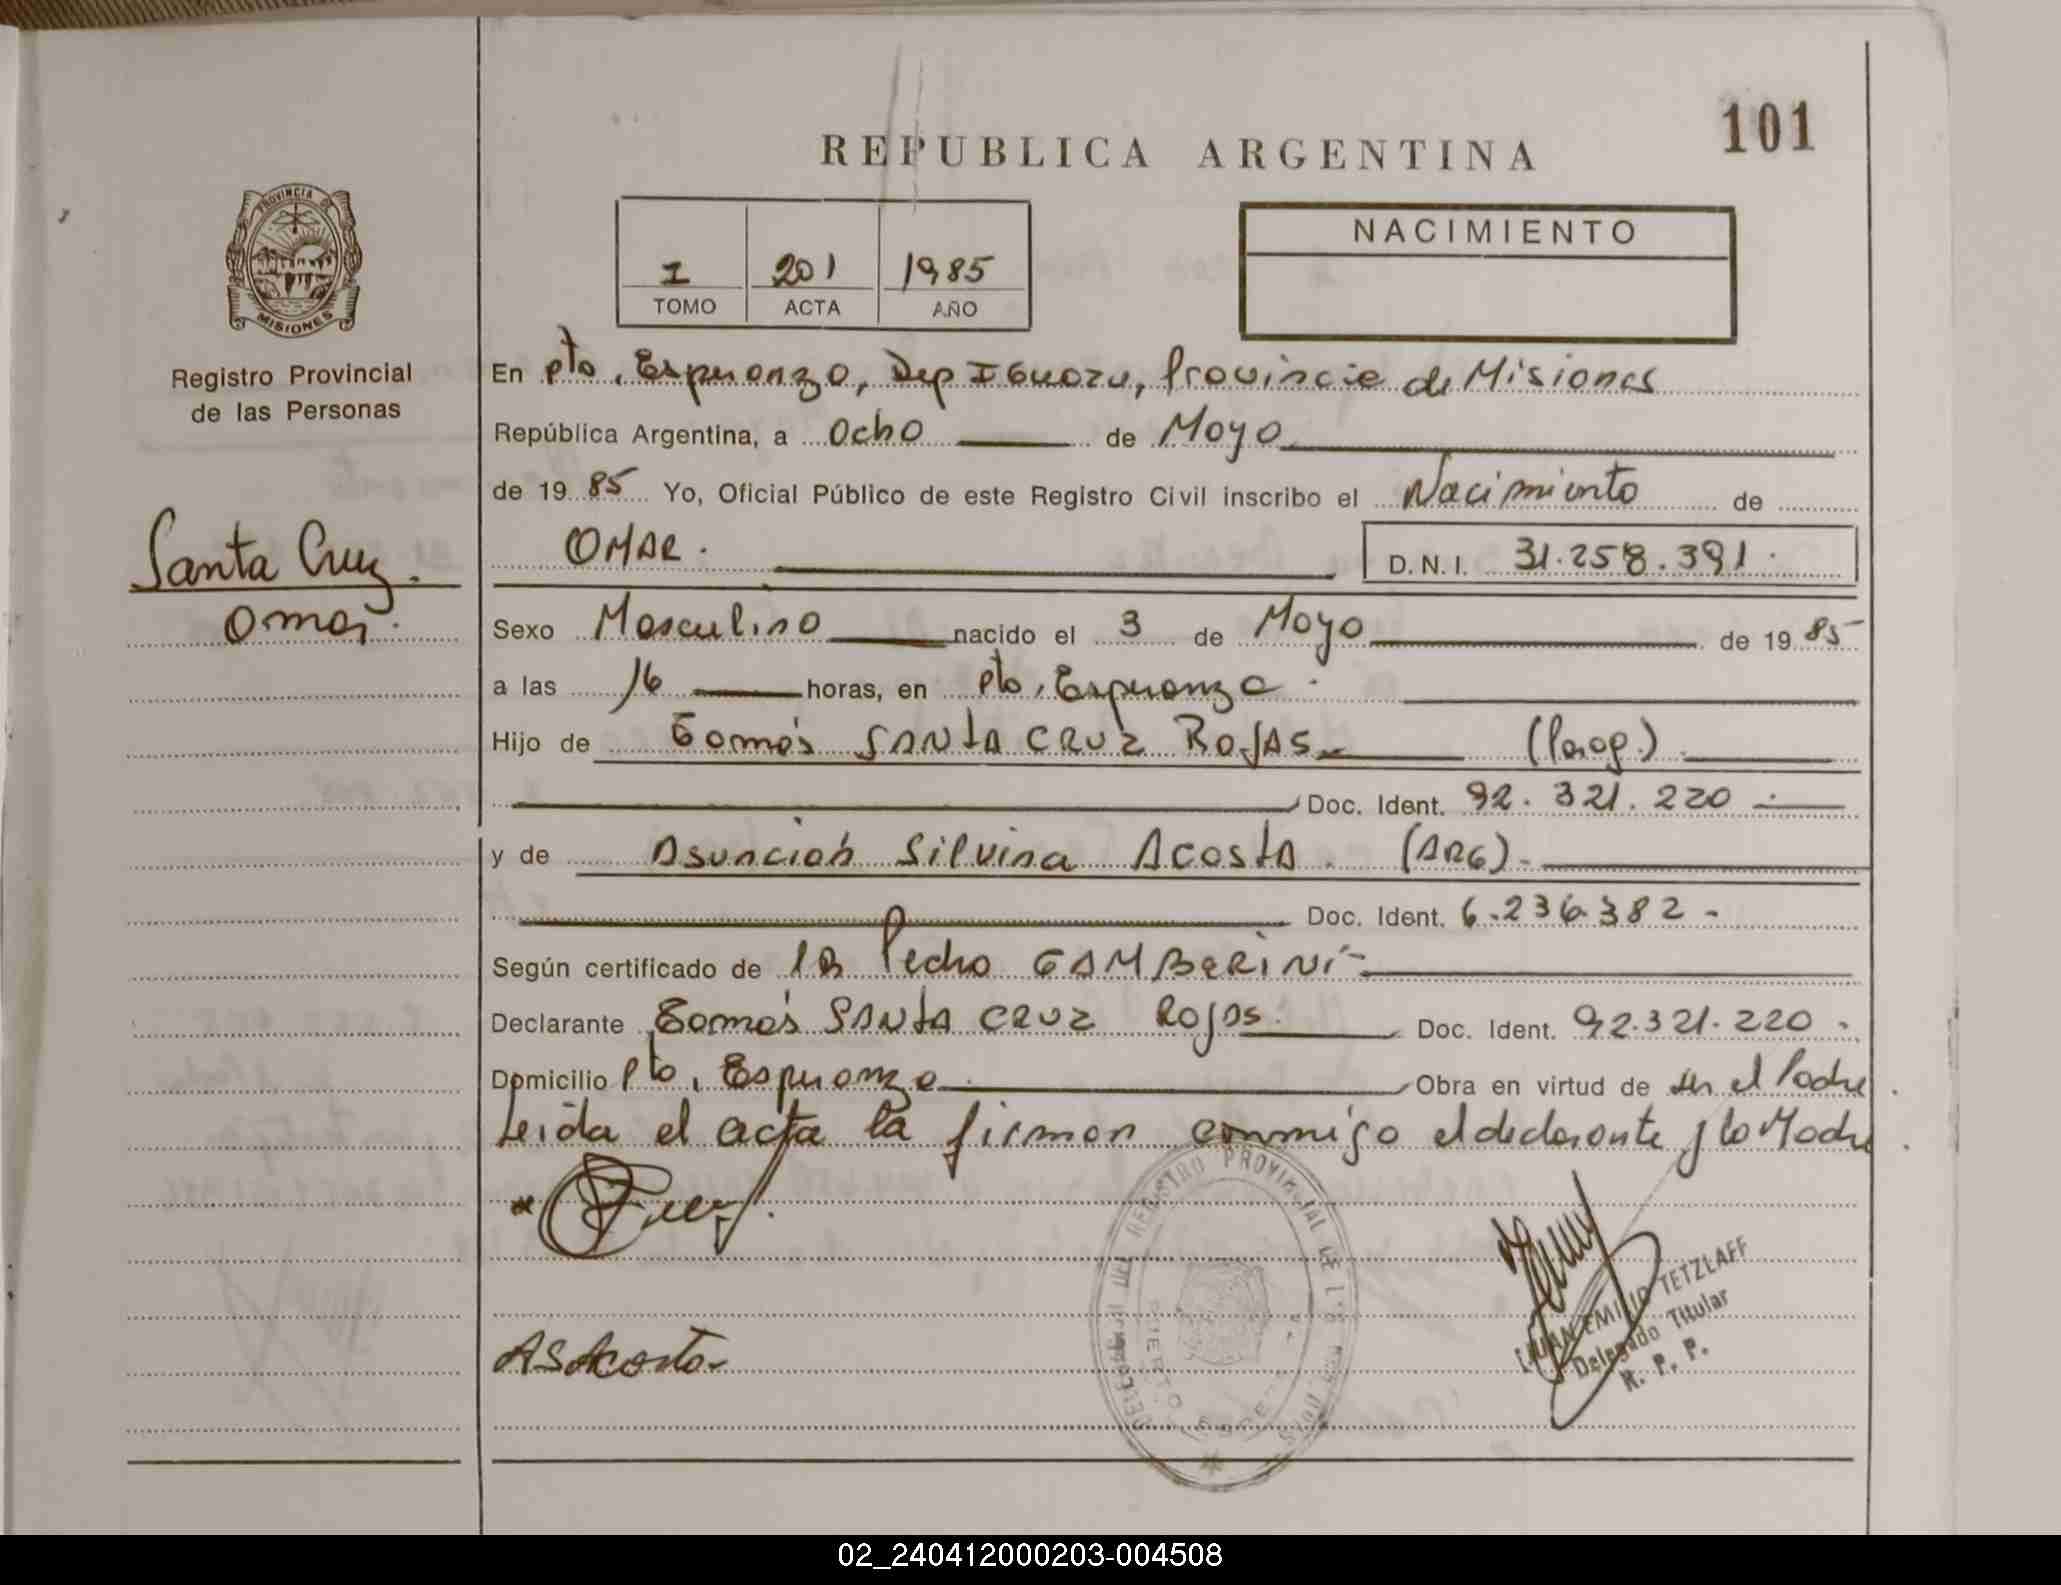 101
REPUBLICA ARGENTINA
PROVINCIA DE
MISIONES
Registro Provincial
de las Personas
I 201 1985
TOMO ACTA AÑO
NACIMIENTO
En Pto. Esperanza, Dep Iguazu, Provincia de Misiones
República Argentina, a Ocho de Mayo
de 19 85 Yo, Oficial Público de este Registro Civil inscribo el Nacimiento de
OMAR. D.N.I. 31.258.391.
Santa Cruz.
Omar.
Sexo Masculino nacido el 3 de Mayo de 19 85
a las 16 horas, en Pto. Esperanza.
Hijo de Tomás SANTA CRUZ ROJAS (Parag.)
Doc. Ident. 92.321.220.
y de Asunción Silvina Acosta. (ARG)
Doc. Ident. 6.236.382-
Según certificado de Pedro GAMBERINI
Declarante Tomás SANTA CRUZ Rojas. Doc. Ident. 92.321.220.
Domicilio Pto. Esperanza Obra en virtud de ser el Padre.
Leida el acta la firman conmigo el declarante y la Madre.
REGISTRO PROVINCIAL DE LAS
PUERTO ESPERANZA
JUAN EMILIO TETZLAFF
Delegado Titular
R. P. P.
ASAcosta
02_240412000203-004508